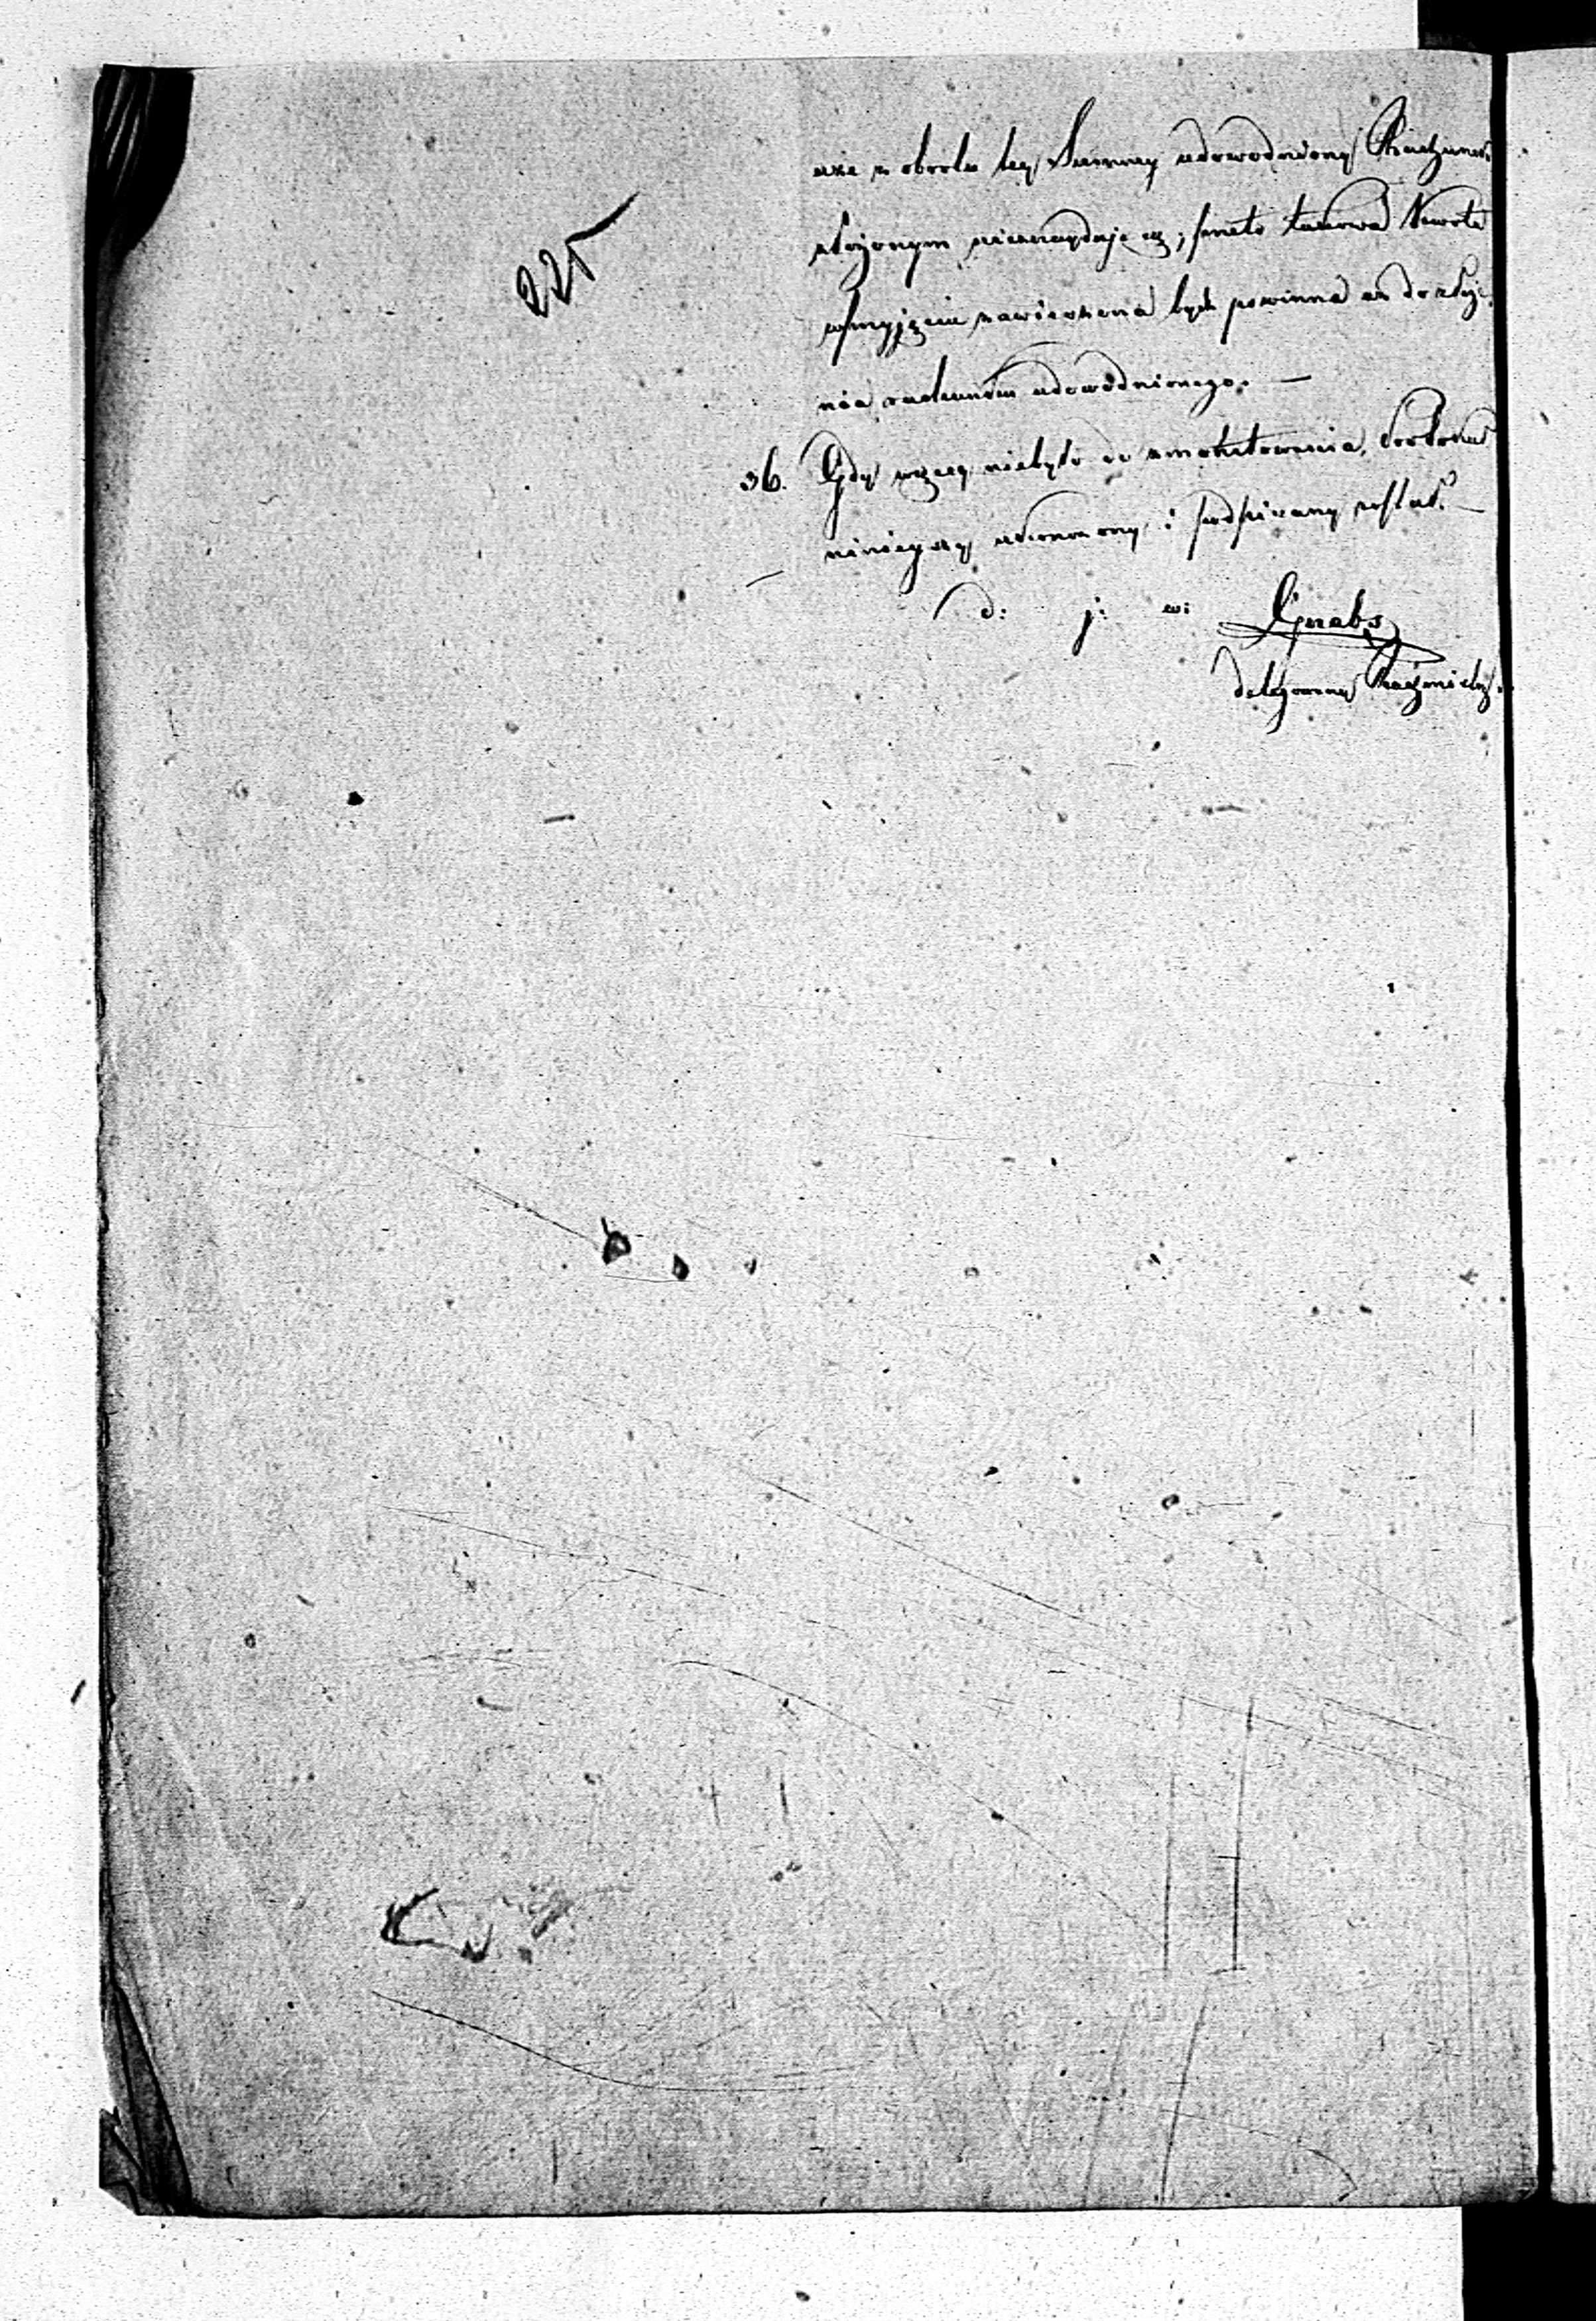 225
aże z obrotu tey Summy udowodniony Rachunek
złożonym nieznayduje się; przeto takowa kwota
w przyjęciu zawieszona być powinna aż do złoże-
nia rachunku udowodnionego. —
36. Gdy więcey niebyło do zmonitowania, Protokuł
ninieyszy ukończony i podpisany został. —
d: j: w: Grabs
delegowany Rachmistrz.